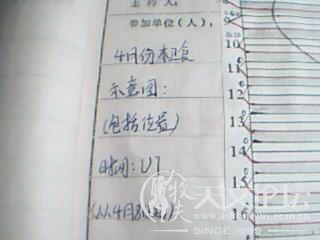 主持人：
参加单位(人)：
4月份木卫
示意图：
(包括位置)
时间：UT
(从4月
9
10
11
12
13
14
15
天文论坛
SINCE 1999